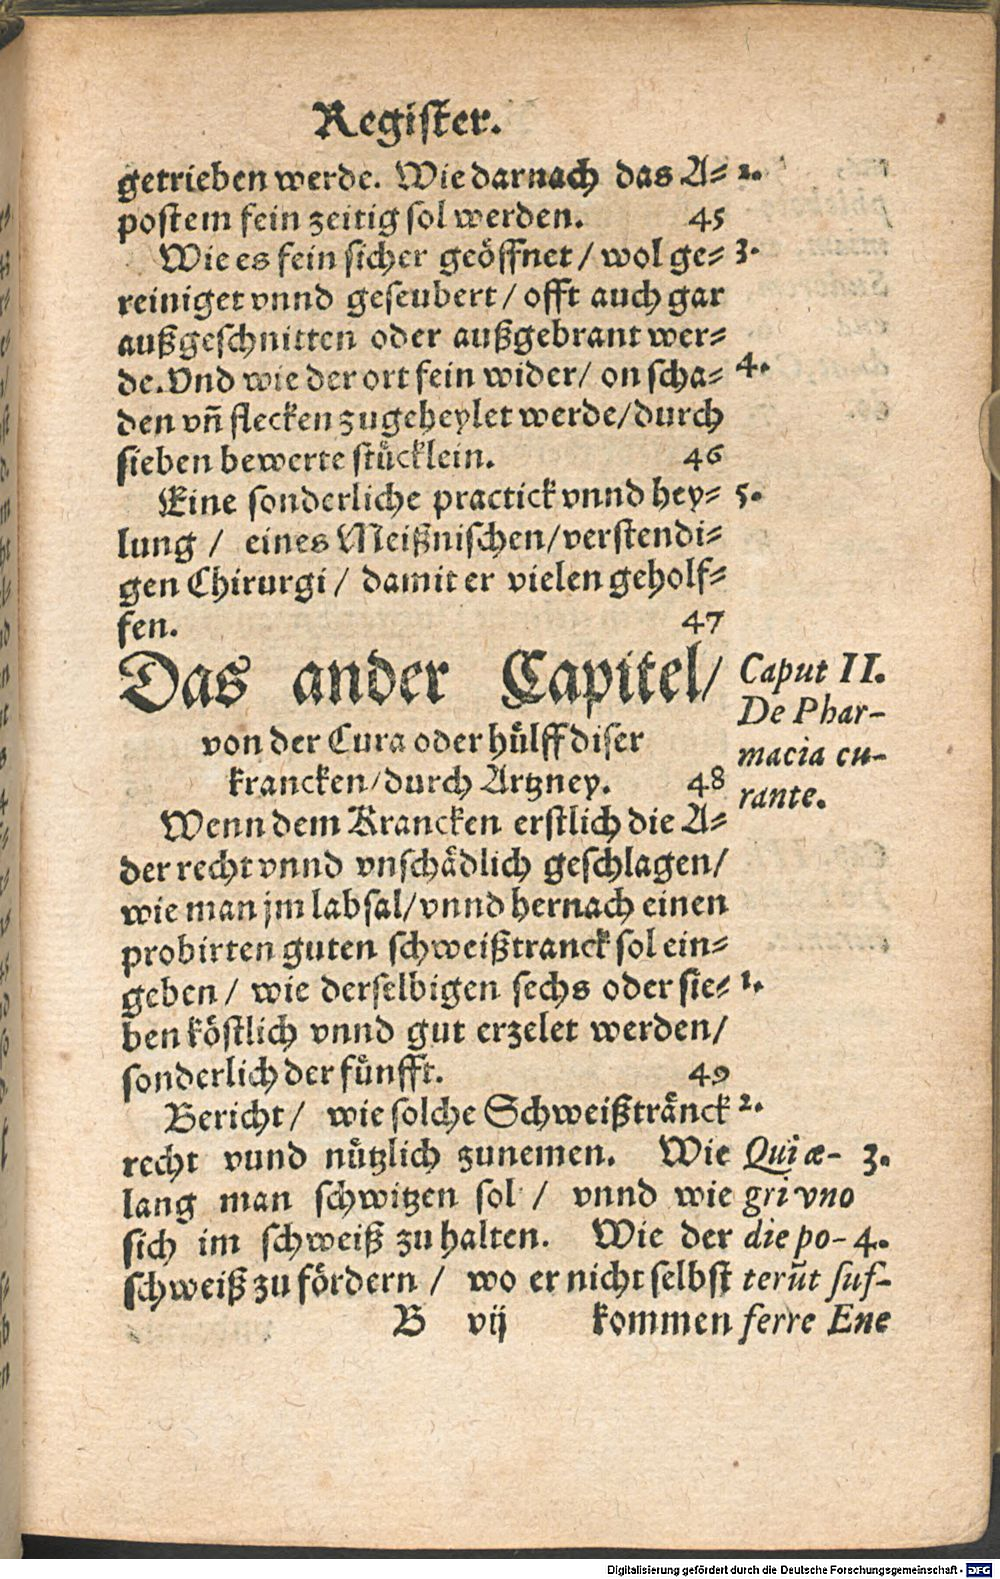 Register.
getrieben werde. Wie darnach das A- 2.
postem fein zeitig sol werden. 45
Wie es fein sicher geöffnet / wol ge- 3.
reiniget vnnd geseubert / offt auch gar
außgeschnitten oder außgebrant wer-
de. Vnd wie der ort fein wider / on scha- 4.
den vñ flecken zugeheylet werde / durch
sieben bewerte stücklein. 46
Eine sonderliche practick vnnd hey- 5.
lung / eines Meißnischen / verstendi-
gen Chirurgi / damit er vielen geholf-
fen. 47
Das ander Capitel /
von der Cura oder hülff diser
krancken / durch Artzney. 48
Caput II.
De Phar-
macia cu-
rante.
Wenn dem Krancken erstlich die A-
der recht vnnd vnschädlich geschlagen /
wie man jm labsal / vnnd hernach einen
probirten guten schweißtranck sol ein-
geben / wie derselbigen sechs oder sie- 1.
ben köstlich vnnd gut erzelet werden /
sonderlich der fünfft. 49
Bericht / wie solche Schweißtränck 2.
recht vund nützlich zunemen. Wie
lang man schwitzen sol / vnnd wie
sich im schweiß zu halten. Wie der
schweiß zu fördern / wo er nicht selbst
Qui æ- 3.
gri vno
die po- 4.
terūt suf-
ferre Ene
B vij kommen
Digitalisierung gefördert durch die Deutsche Forschungsgemeinschaft - DFG